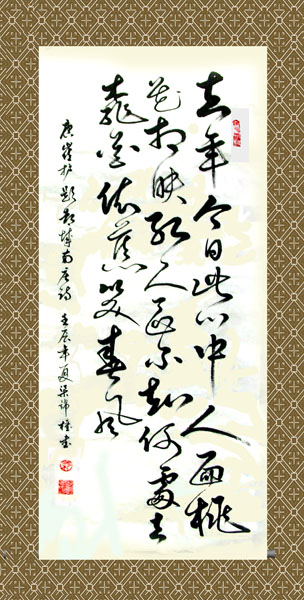 去年今日此门中人面桃
花相映红人面不知何處去
桃花依舊笑春风
唐崔护题都城南庄诗 壬辰年夏梁书